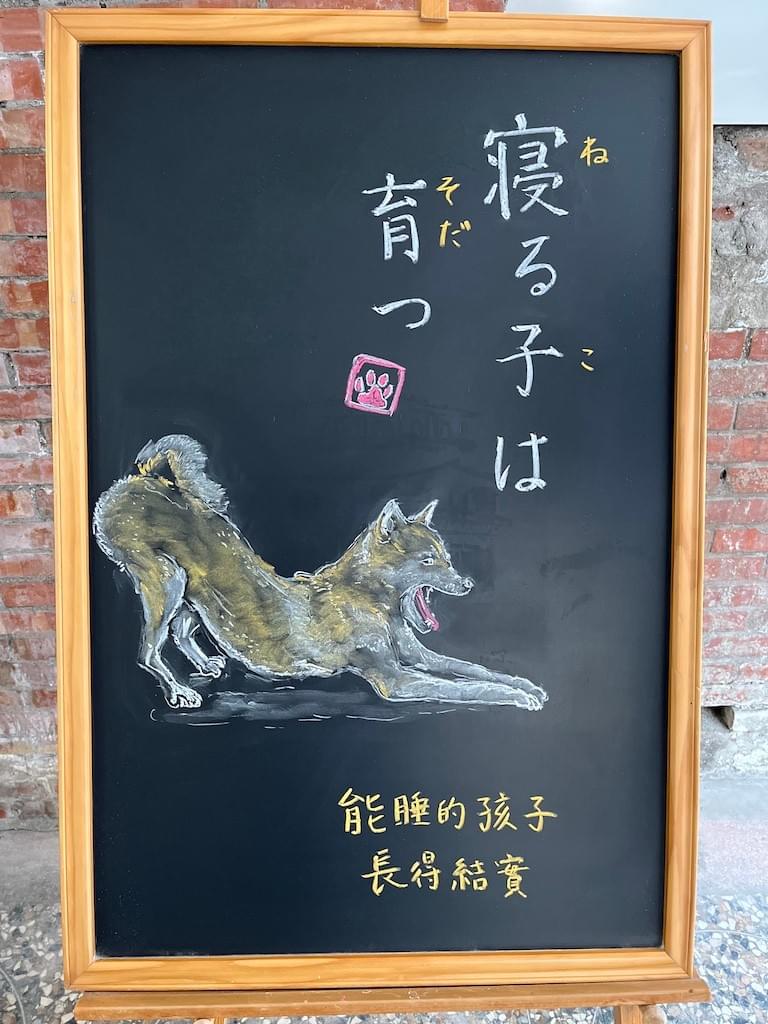 寝る子は
ね
こ
育つ
そだ
能睡的孩子
長得結實